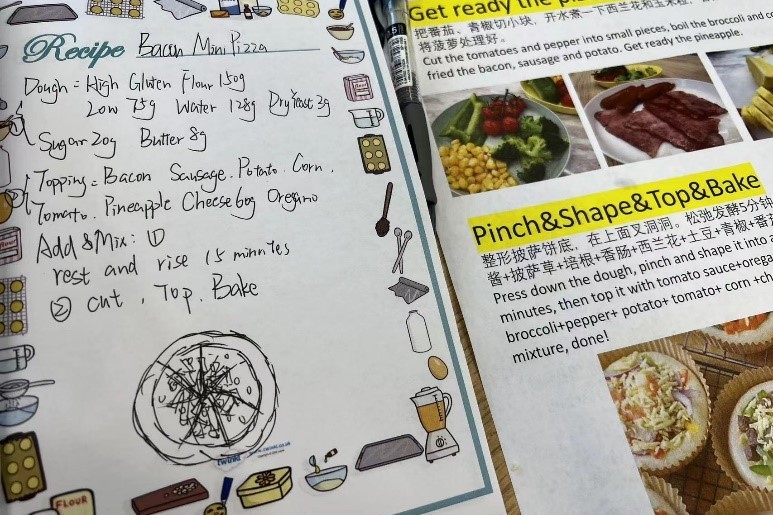 Recipe Bacon Mini Pizza
Dough = High Gluten Flour 150g
Low 75g Water 128g Dry Yeast 3g
Sugar 20g Butter 8g
Topping = Bacon Sausage. Potato. Corn.
Tomato. Pineapple Cheese 60g Oregano
Add & Mix: ①
rest and rise 15 minutes
② cut, Top. Bake
twinkl
www.twinkl.co.uk
FLOUR
Get ready the
把番茄、青椒切小块、开水煮一下西兰花和玉米粒
将菠萝处理好。
Cut the tomatoes and pepper into small pieces, boil the broccoli and co
fried the bacon, sausage and potato. Get ready the pineapple.
Pinch&Shape&Top&Bake
整形披萨饼底，在上面叉洞洞。松弛发酵5分钟
酱+披萨草+培根+香肠+西兰花+土豆+青椒+番
Press down the dough, pinch and shape it into
minutes, then top it with tomato sauce+orega
broccoli+pepper+ potato+ tomato+ corn +ch
mixture, done!